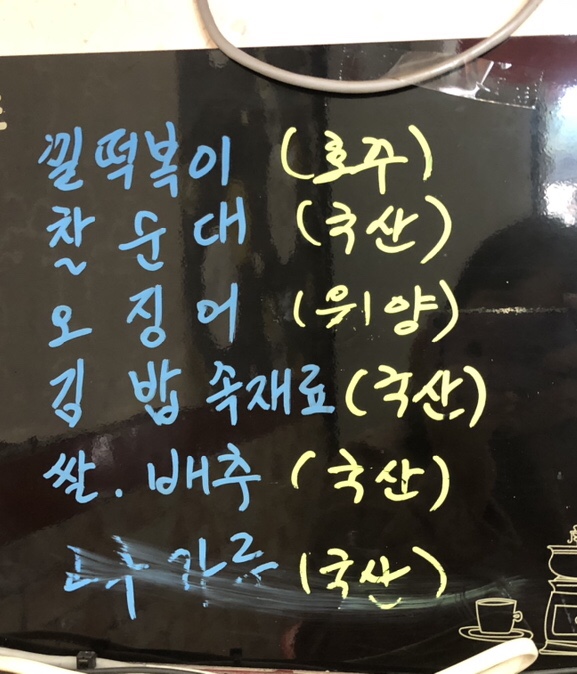 밀떡복이 (호주)
찰 순대 (국산)
오 징 어 (원양)
김 밥 속재료 (국산)
쌀. 배추 (국산)
고추 가루 (국산)